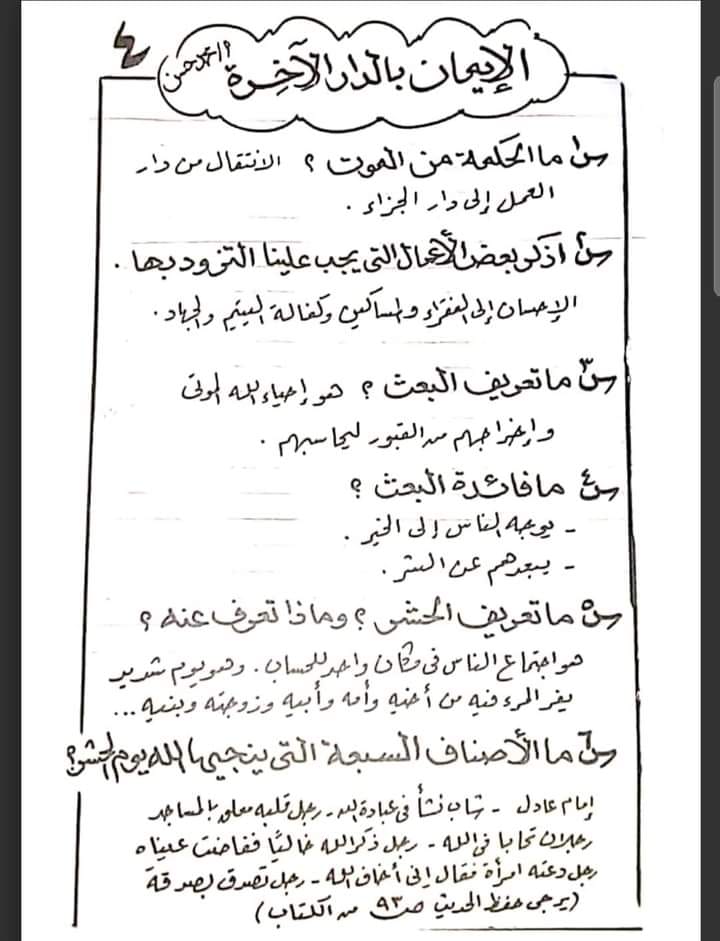 ٤
الإيمان بالدار الآخرة
أ/أحمد حسن
س١ ما الحكمة من الموت ؟ الانتقال من دار
العمل إلى دار الجزاء .
س٢ اذكر بعض الأعمال التي يجب علينا التزود بها .
الإحسان إلى الفقراء والمساكين وكفالة اليتيم والجهاد .
س٣ ما تعريف البعث ؟ هو إحياء الله الموتى
وإخراجهم من القبور ليحاسبهم .
س٤ ما فائدة البعث ؟
- يوجه الناس إلى الخير .
- يبعدهم عن الشر .
س٥ ما تعريف الحشر ؟ وماذا تعرف عنه ؟
هو اجتماع الناس في مكان واحد للحساب . وهو يوم شديد
يفر المرء فيه من أخيه وأمه وأبيه وزوجته وبنيه ...
س٦ ما الأصناف السبعة التي ينجيها الله يوم الحشر ؟
إمام عادل - شاب نشأ في عبادة الله - رجل قلبه معلق بالمساجد
رجلان تحابا في الله - رجل ذكر الله خاليًا ففاضت عيناه
رجل دعته امرأة فقال إني أخاف الله - رجل تصدق بصدقة
(يرجى حفظ الحديث ص٩٣ من الكتاب)